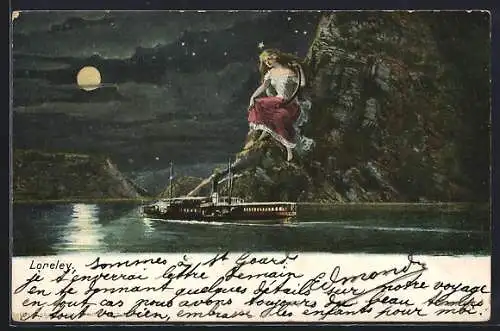 Loreley, sommes à St Goars.
je t'enverrai lettre demain Edmond
en te donnant quelques détails sur notre voyage
en tout cas nous avons toujours du beau temps
et tout va bien, embrasse les enfants pour moi.